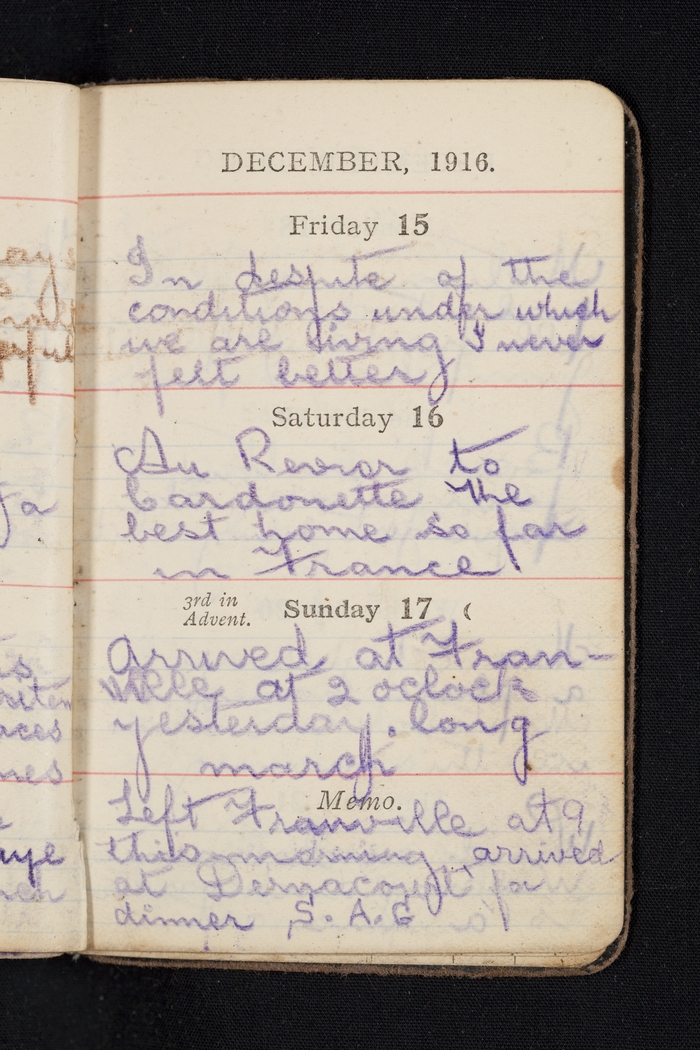 DECEMBER, 1916.
Friday 15
In despite of the
conditions under which
we are living I never
felt better
Saturday 16
Au Revior to
Cardonette the
best home so far
in France
3rd in
Advent.
Sunday 17 (
Arrived at Fran-
ville at 2 oclock
yesterday. long
march
Memo.
Left Franville at 9
this morning arrived
at Dernacourt for
dinner S. A. G